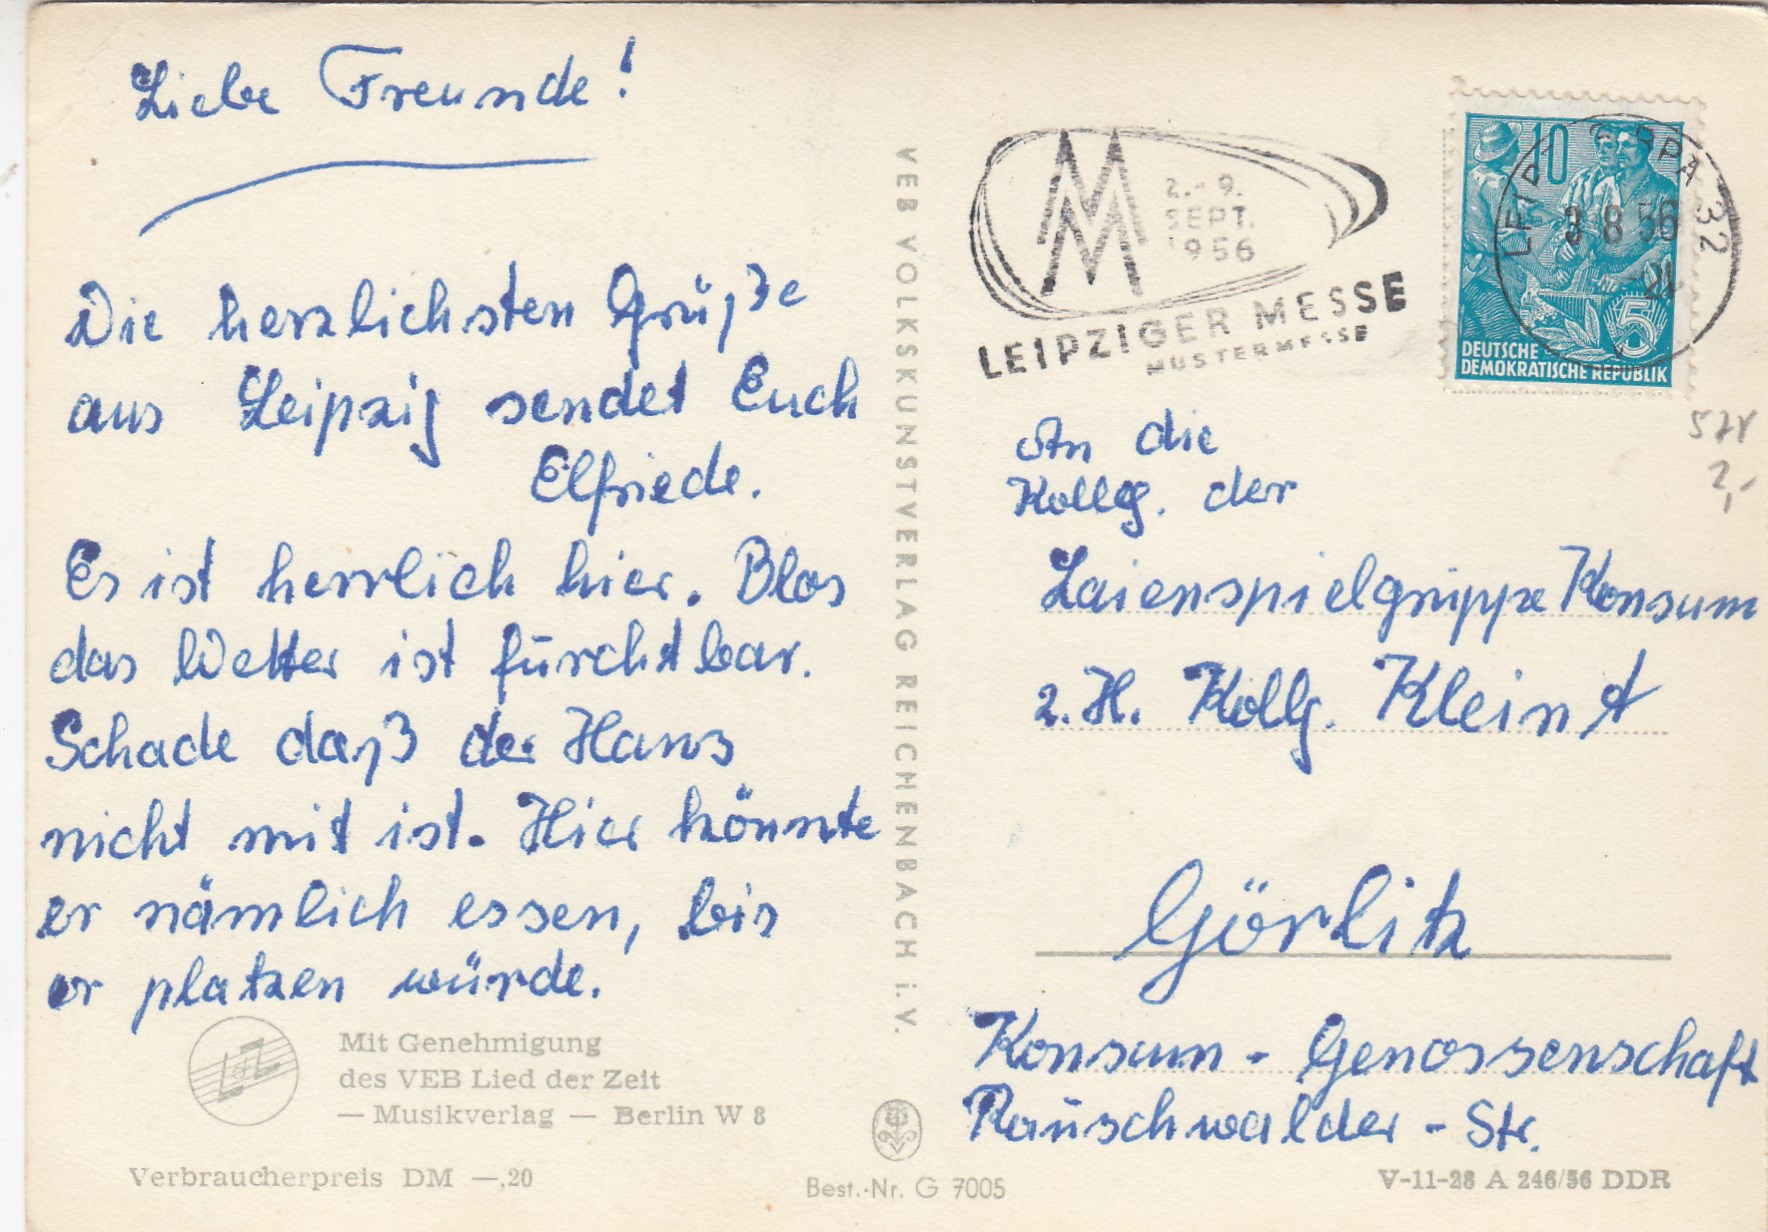 Liebe Freunde!
Die herzlichsten Grüße
aus Leipzig sendet Euch
Elfriede.
Es ist herrlich hier. Blos
das Wetter ist furchtbar.
Schade daß der Hans
nicht mit ist. Hier könnte
er nämlich essen, bis
er platzen würde.
Mit Genehmigung
des VEB Lied der Zeit
— Musikverlag — Berlin W 8
Verbraucherpreis DM —,20
VEB VOLKSKUNSTVERLAG REICHENBACH i. V.
Best.-Nr. G 7005
2.-9.
SEPT.
1956
LEIPZIGER MESSE
MUSTERMESSE
10
5
DEUTSCHE
DEMOKRATISCHE REPUBLIK
8 56
32
2,-
An die
Kollg. der
Laienspielgruppe Konsum
z. H. Kollg. Kleint
Görlitz
Konsum - Genossenschaft
Rauschwalder - Str.
V-11-28 A 246/56 DDR